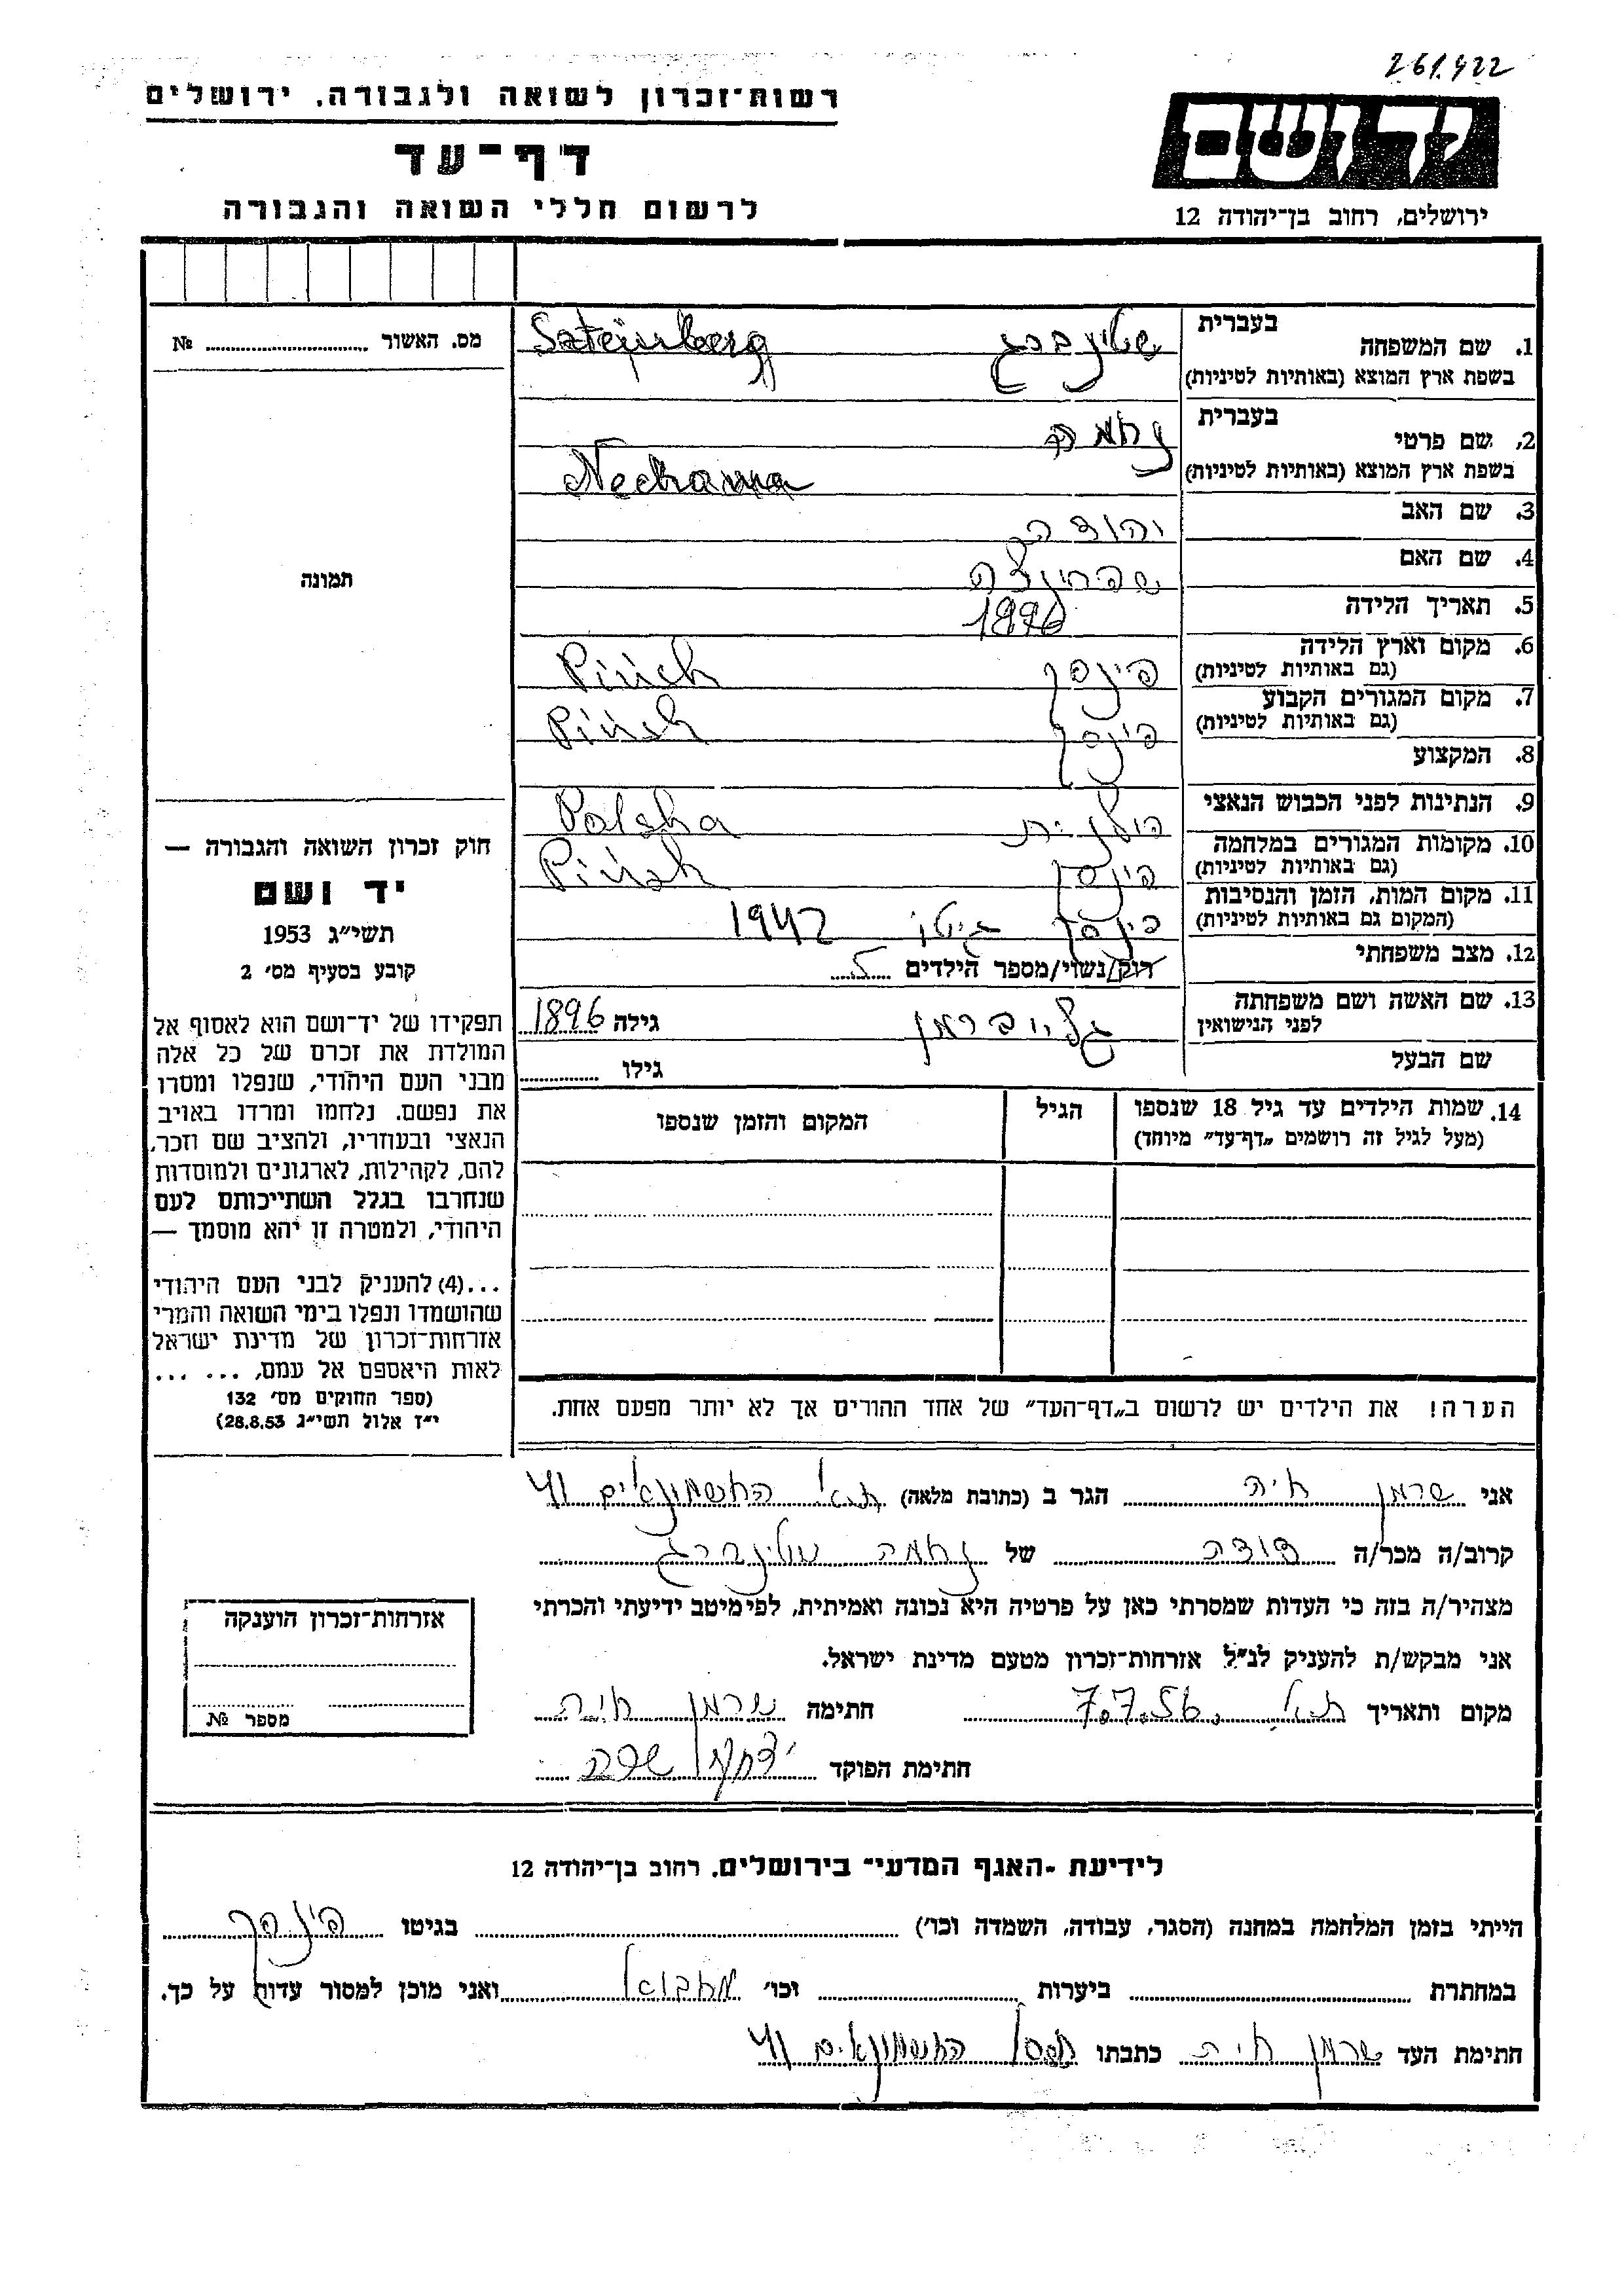 261.422
רשות־זכרון לשואה ולגבורה. ירושלים
דף־עד
לרשום חללי השואה והגבורה
ידושם
ירושלים, רחוב בן־יהודה 12
מס. האשור № ........
תמונה
חוק זכרון השואה והגבורה —
יד ושם
תשי״ג 1953
קובע בסעיף מס׳ 2
תפקידו של יד־ושם הוא לאסוף אל
המולדת את זכרם של כל אלה
מבני העם היהודי, שנפלו ומסרו
את נפשם. נלחמו ומרדו באויב
הנאצי ובעוזריו, ולהציב שם וזכר
להם, לקהילות, לארגונים ולמוסדות
שנחרבו בגלל השתייכותם לעם
היהודי, ולמטרה זו יהא מוסמך —
...(4) להעניק לבני העם היהודי
שהושמדו ונפלו בימי השואה והמרי
אזרחות־זכרון של מדינת ישראל
לאות היאספם אל עמם, ... ...
(ספר החוקים מס׳ 132
י״ז אלול תשי״ג 28.8.53)
1. שם המשפחה בעברית שטינברג
בשפת ארץ המוצא (באותיות לטיניות) Sztejnberg
2. שם פרטי בעברית נחמה
בשפת ארץ המוצא (באותיות לטיניות) Nechama
3. שם האב יהודה
4. שם האם שפרינצה
5. תאריך הלידה 1896
6. מקום וארץ הלידה (גם באותיות לטיניות) פינסק Pińsk
7. מקום המגורים הקבוע (גם באותיות לטיניות) פינסק Pińsk
8. המקצוע
9. הנתינות לפני הכבוש הנאצי פולנית Polska
10. מקומות המגורים במלחמה (גם באותיות לטיניות) פינסק Pińsk
11. מקום המות, הזמן והנסיבות (המקום גם באותיות לטיניות) פינסק גיטו 1942
12. מצב משפחתי רוק/נשוי/מספר הילדים 5
13. שם האשה ושם משפחתה לפני הנישואין גלויברמן גילה 1896
שם הבעל גילו ........
14. שמות הילדים עד גיל 18 שנספו הגיל המקום והזמן שנספו
(מעל לגיל זה רושמים „דף־עד״ מיוחד)
הערה! את הילדים יש לרשום ב„דף־העד״ של אחד ההורים אך לא יותר מפעם אחת.
אני שרמן חיה הגר ב (כתובת מלאה) ת״א החשמונאים 41
קרוב/ה מכר/ה דודה של נחמה שטינברג
מצהיר/ה בזה כי העדות שמסרתי כאן על פרטיה היא נכונה ואמיתית, לפי מיטב ידיעתי והכרתי
אני מבקש/ת להעניק לנ״ל אזרחות־זכרון מטעם מדינת ישראל.
מקום ותאריך ת״א 7.7.56 חתימה שרמן חיה
חתימת הפוקד שרה
אזרחות־זכרון הוענקה
מספר №
לידיעת ״האגף המדעי״ בירושלים. רחוב בן־יהודה 12
הייתי בזמן המלחמה במחנה (הסגר, עבודה, השמדה וכו׳) ........ בגיטו פינסק
במחתרת ........ ביערות ........ וכו׳ מחבוא ואני מוכן למסור עדות על כך.
חתימת העד שרמן חיה כתבתו החשמונאים 41